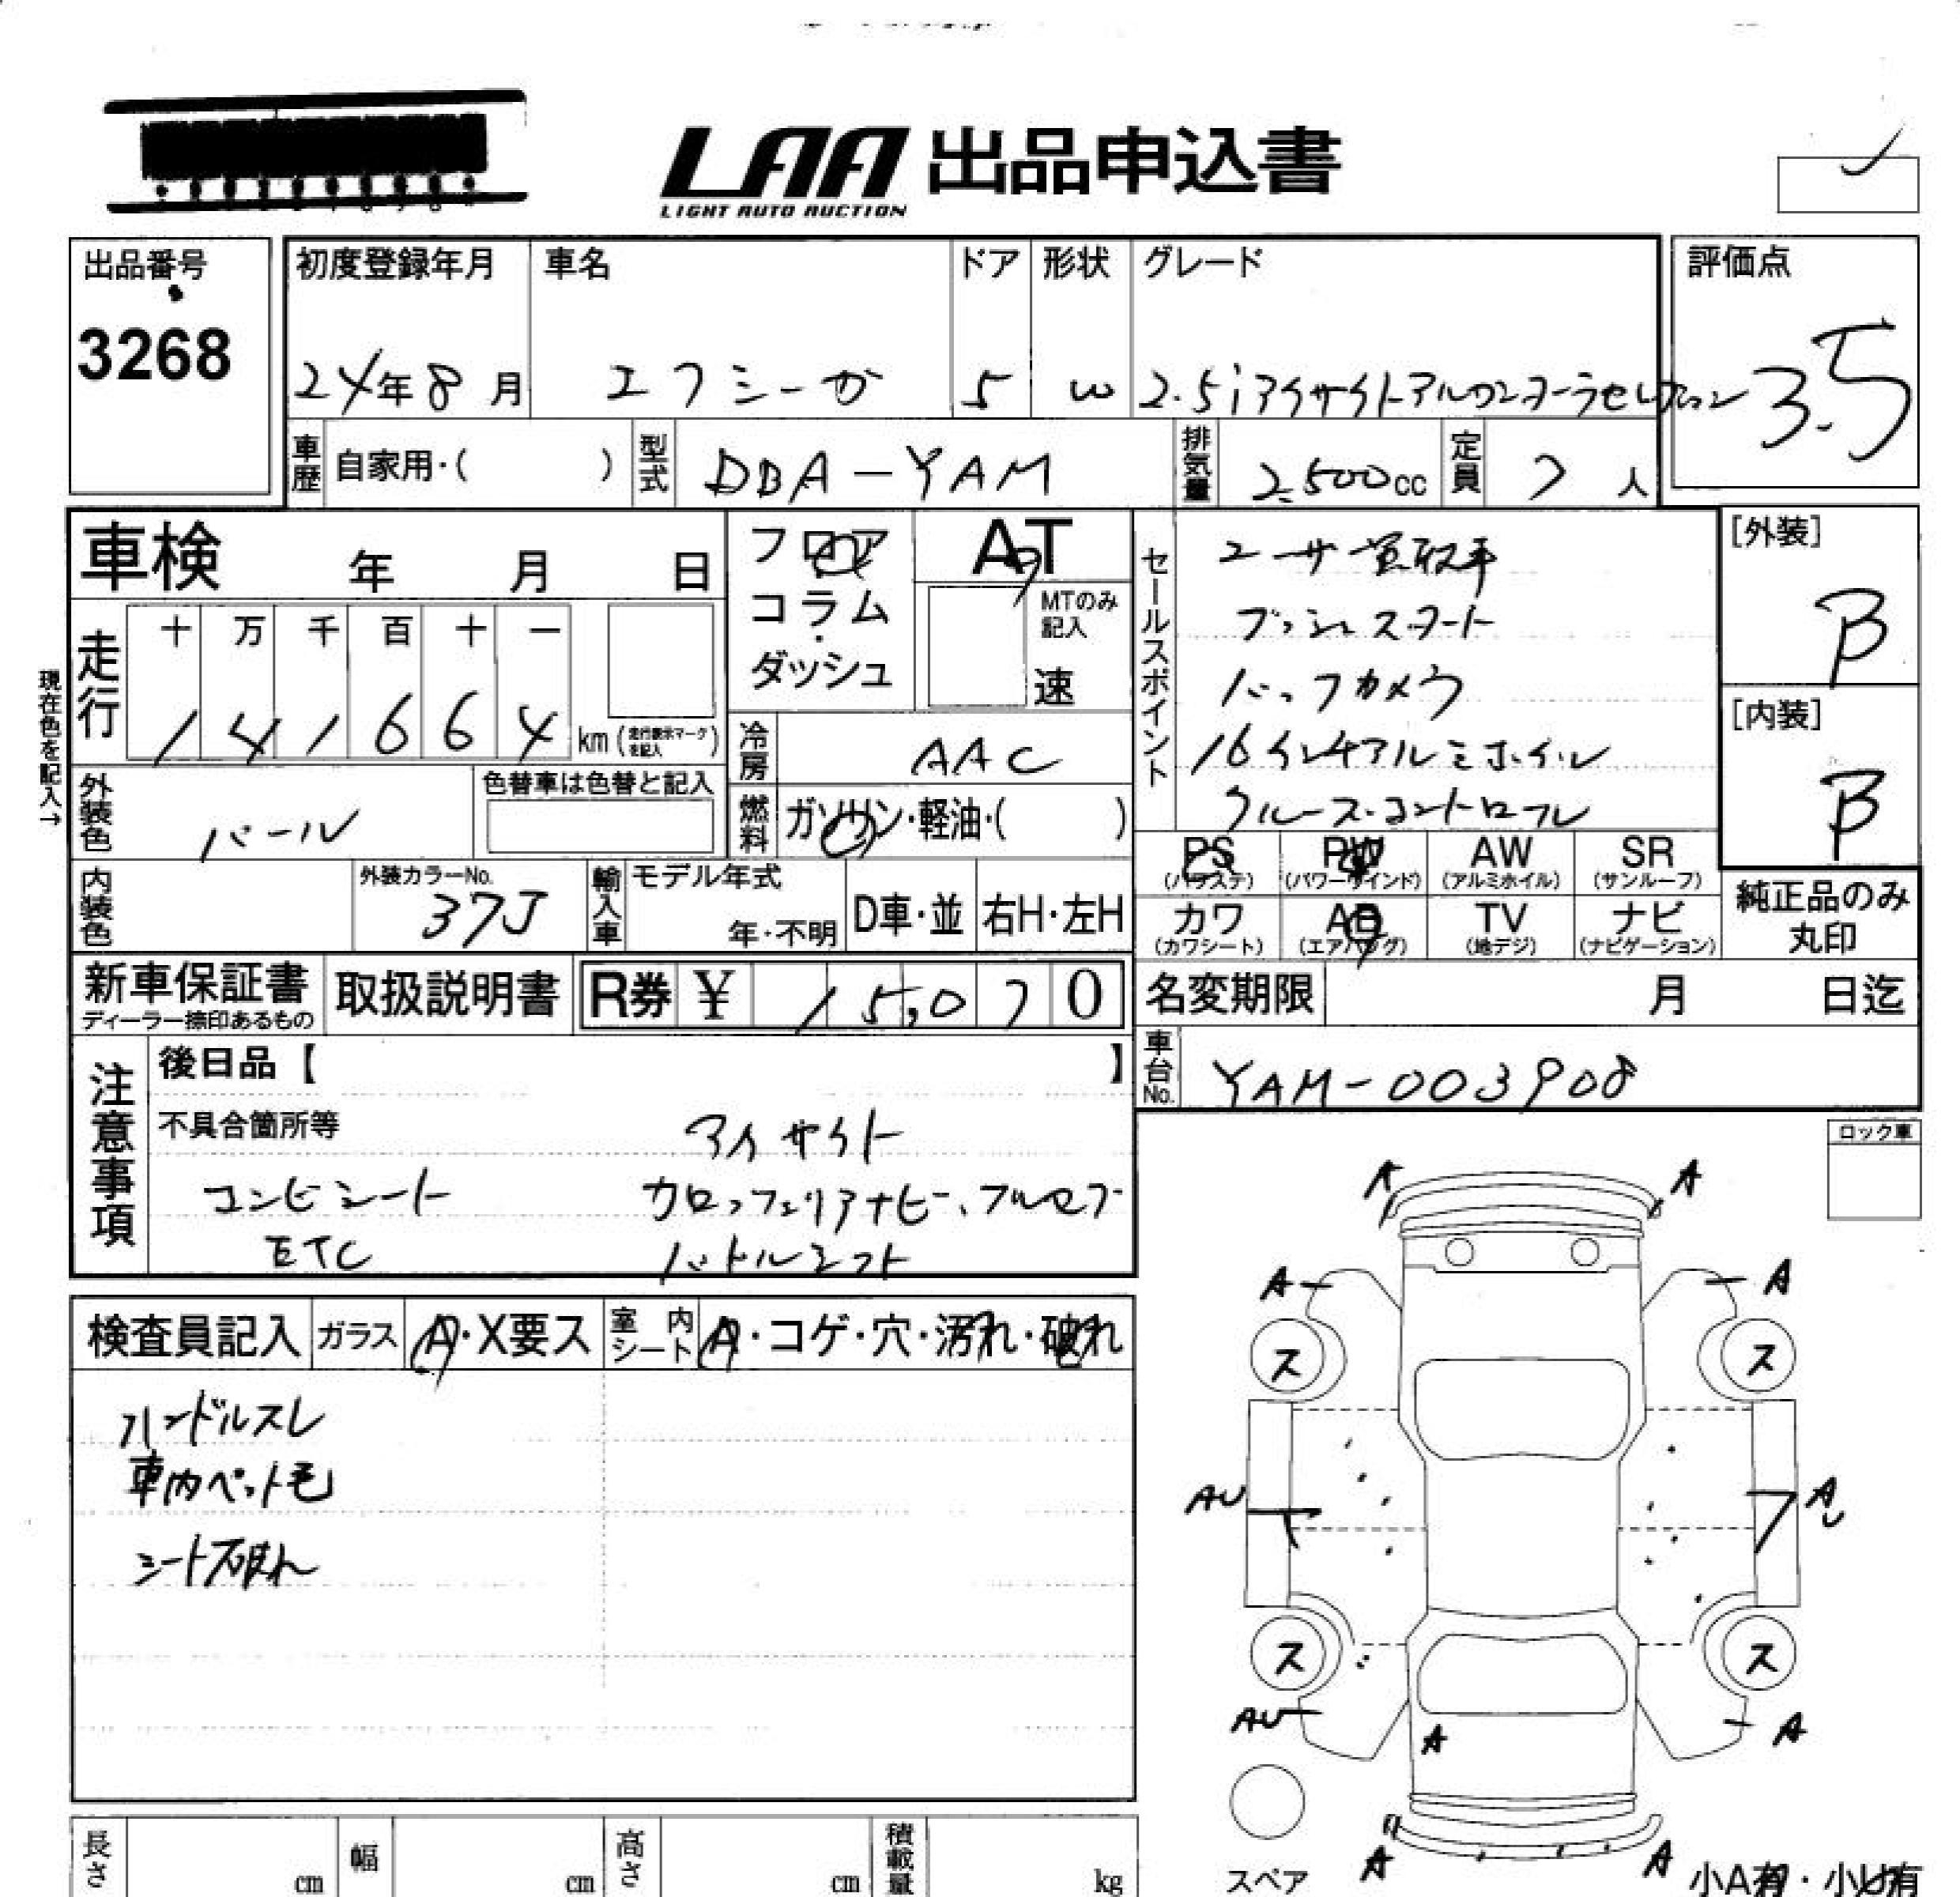 LAA 出品申込書
LIGHT AUTO AUCTION
出品番号
3268
初度登録年月
24年8月
車名
エクシーガ
ドア
5
形状
W
グレード
2.5iアイサイトアルカンターラセレクション
評価点
3.5
車歴 自家用・( )
型式 DBA-YAM
排気量 2,500cc
定員 7人
車検 年 月 日
フロア・コラム・ダッシュ
AT
MTのみ記入
速
現在色を記入→
走行
十 万 千 百 十 一
1 4 1 6 6 4 km (走行表示マークを記入)
冷房 AAC
外装色 パール
色替車は色替と記入
燃料 ガソリン・軽油・( )
内装色
外装カラーNo.
37J
輸入車
モデル年式
年・不明
D車・並
右H・左H
セールスポイント
ユーザー買取車
プッシュスタート
バックカメラ
16インチアルミホイル
クルーズコントロール
[外装]
B
[内装]
B
PS AW SR
(パワステ) (パワーウインド) (アルミホイル) (サンルーフ)
PW
カワ AB TV ナビ
(カワシート) (エアバッグ) (地デジ) (ナビゲーション)
純正品のみ丸印
新車保証書
ディーラー捺印あるもの
取扱説明書
R券 ¥ 15,070
名変期限 月 日迄
車台No. YAM-003908
注意事項
後日品【 】
不具合箇所等
アイサイト
コンビシート カロッツェリアナビ、フルセグ
ETC パドルシフト
ロック車
検査員記入
ガラス A・X要ス
室内シート A・コゲ・穴・汚れ・破れ
ハンドルスレ
車内ペット毛
シート破れ
A A
A A
ス ス
AU AU
ス ス
AU A A
A A
スペア
小A有・小U有
長さ cm
幅 cm
高さ cm
積載量 kg